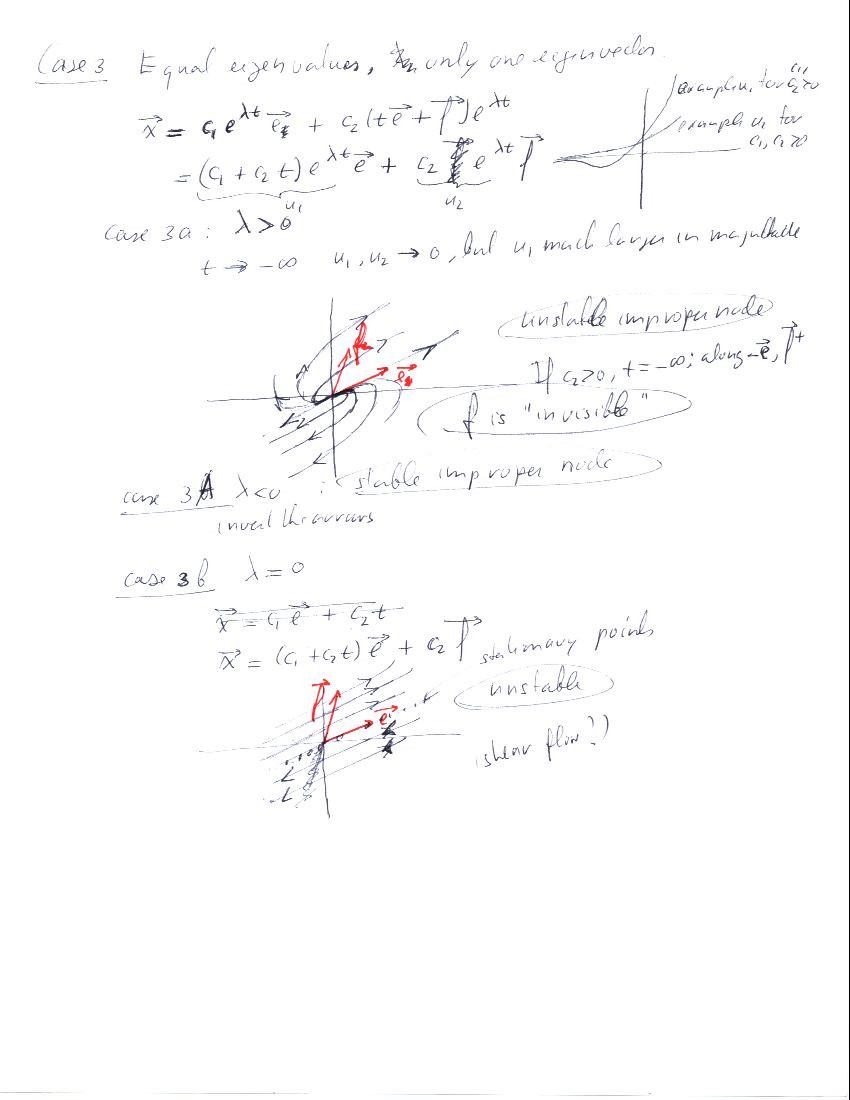 Case 3 Equal eigenvalues, only one eigenvector.
x⃗ = c₁e^{λt} e⃗ + c₂(te⃗ + f⃗)e^{λt}
example u₁ for c₁, c₂>0
example u₁ for
c₁, c₂>0
= (c₁ + c₂t)e^{λt} e⃗ + c₂ e^{λt} f⃗
u₁ u₂
case 3a: λ>0
t → -∞ u₁, u₂ → 0, but u₁ much larger in magnitude
unstable improper node
If c₂>0, t = -∞; along -e⃗, f⃗+
f is "invisible"
f
e⃗
case 3A λ<0 : stable improper node
invert the arrows
case 3b λ = 0
x⃗ = c₁e⃗ + c₂t
x⃗ = (c₁ + c₂t)e⃗ + c₂f⃗
stationary points
unstable
f⃗
e⃗
(shear flow?)